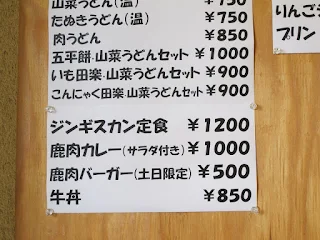 山菜うどん(温) ¥750
たぬきうどん(温) ¥750
肉うどん ¥850
五平餅・山菜うどんセット ¥1000
いも田楽・山菜うどんセット ¥900
こんにゃく田楽 山菜うどんセット ¥900
ジンギスカン定食 ¥1200
鹿肉カレー(サラダ付き) ¥1000
鹿肉バーガー(土日限定) ¥500
牛丼 ¥850
りんご
プリン